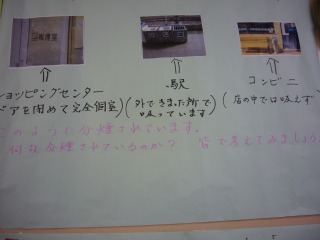 ョッピングセンター
ドアを閉めて完全個室)
駅
(外できまった所で
吸っています)
コンビニ
(店の中では吸えず
このように分煙されています。
何故分煙されているのか? 皆で考えてみましょう